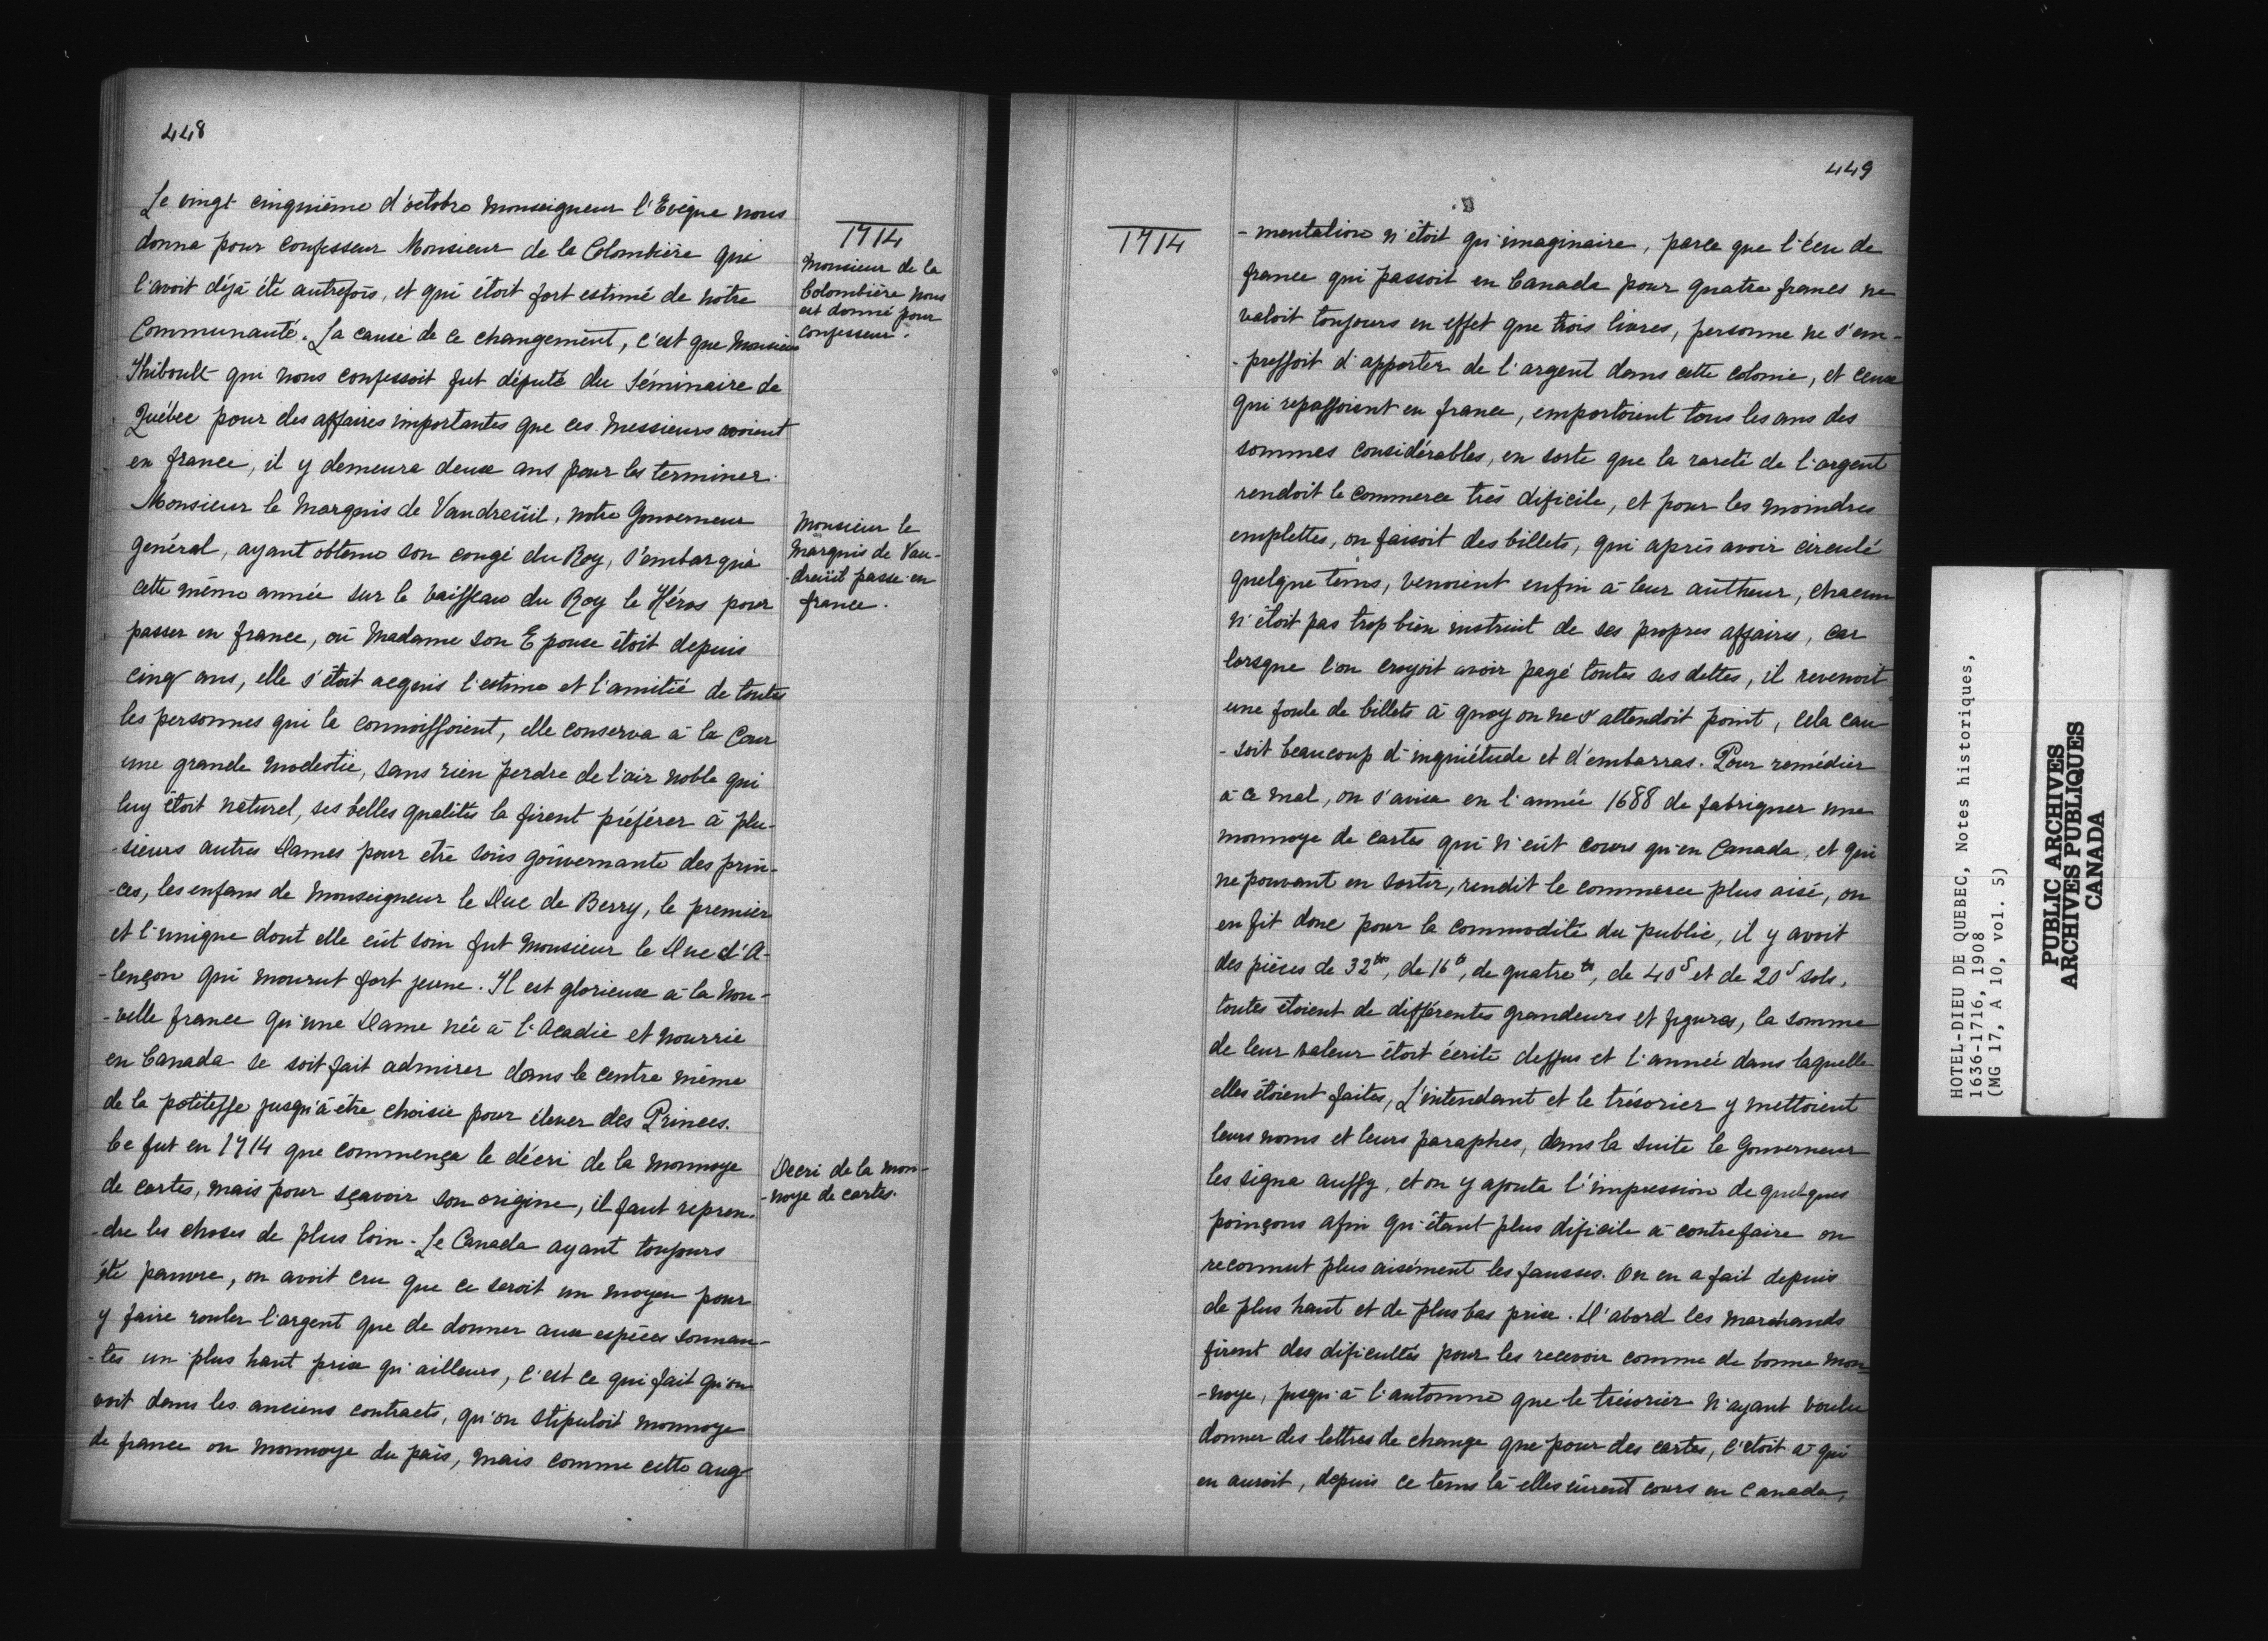 448
Le vingt cinquième d'octobre Monseigneur l'Evêque nous
donna pour confesseur Monsieur de la Colombière qui
l'avoit déjà été autrefois, et qui étoit fort estimé de notre
Communauté. La cause de ce changement, c'est que Monsieur
Thiboult qui nous confessoit fut député du Séminaire de
Québec pour des affaires importantes que ces Messieurs avoient
en france, il y demeura deux ans pour les terminer.
Monsieur le Marquis de Vaudreüil, notre Gouverneur
général, ayant obtenu son congé du Roy, s'embarqua
cette même année sur le vaisseau du Roy le Héros pour
passer en france, où Madame son Epouse étoit depuis
cinq ans, elle s'étoit acquis l'estime et l'amitié de toutes
les personnes qui la connoissoient, elle conserva à la Cour
une grande modestie, sans rien perdre de l'air noble qui
luy étoit naturel, ses belles qualités la firent préférer à plu-
-sieurs autres Dames pour etre sous gouvernante des prin-
-ces, les enfans de Monseigneur le Duc de Berry, le premier
et l'unique dont elle eût soin fut Monsieur le Duc d'A-
-lençon qui mourut fort jeune. Il est glorieux à la Nou-
-velle france qu'une Dame née à l'Acadie et nourrie
en Canada se soit fait admirer dans le centre même
de la politesse jusqu'à être choisie pour élever des Princes.
Ce fut en 1714 que commença le décri de la monnoye
de cartes, mais pour sçavoir son origine, il faut repren-
-dre les choses de plus loin. Le Canada ayant toujours
été pauvre, on avoit cru que ce seroit un moyen pour
y faire rouler l'argent que de donner aux espèces sonnan-
-tes un plus haut prix qu'ailleurs, c'est ce qui fait qu'on
voit dans les anciens contracts, qu'on stipuloit monnoye
de france ou monnoye du païs, mais comme cette aug-
1714
Monsieur de la
Colombière nous
est donné pour
confesseur.
Monsieur le
Marquis de Vau-
-dreüil passe en
france.
Decri de la mon-
-noye de cartes.
449
1714
-mentation n'étoit qu'imaginaire, parce que l'écu de
france qui passoit en Canada pour quatre francs ne
valoit toujours en effet que trois livres, personne ne s'em-
-pressoit d'apporter de l'argent dans cette colonie, et ceux
qui repassoient en france, emportoient tous les ans des
sommes considérables, en sorte que la rareté de l'argent
rendoit le commerce très dificile, et pour les moindres
emplettes, on faisoit des billets, qui après avoir circulé
quelque tems, venoient enfin à leur autheur, chacun
n'étoit pas trop bien instruit de ses propres affaires, car
lorsque l'on croyoit avoir payé toutes ses dettes, il revenoit
une foule de billets à quoy on ne s'attendoit point, cela cau-
-soit beaucoup d'inquiétude et d'embarras. Pour remédier
à ce mal, on s'avisa en l'année 1688 de fabriquer une
monnoye de cartes qui n'eût cours qu'en Canada, et qui
ne pouvant en sortir, rendit le commerce plus aisé, on
en fit donc pour la commodité du public, il y avoit
des pièces de 32ᵗᵗ, de 16ᵗᵗ, de quatre ᵗᵗ, de 40ˢ et de 20ˢ sols,
toutes étoient de différentes grandeurs et figures, la somme
de leur valeur étoit écrite dessus et l'année dans laquelle
elles étoient faites, L'intendant et le trésorier y mettoient
leurs noms et leurs paraphes, dans la suite le Gouverneur
les signa aussy, et on y ajouta l'impression de quelques
poinçons afin qu'étant plus dificile à contrefaire on
reconnut plus aisément les fausses. On en a fait depuis
de plus haut et de plus bas prix. D'abord les marchands
firent des dificultés pour les recevoir comme de bonne mon-
-noye, jusqu'à l'automne que le trésorier n'ayant voulu
donner des lettres de change que pour des cartes, c'etoit à qui
en auroit, depuis ce tems là elles eûrent cours en Canada,
HOTEL-DIEU DE QUEBEC, Notes historiques,
1636-1716, 1908
(MG 17, A 10, vol. 5)
PUBLIC ARCHIVES
ARCHIVES PUBLIQUES
CANADA